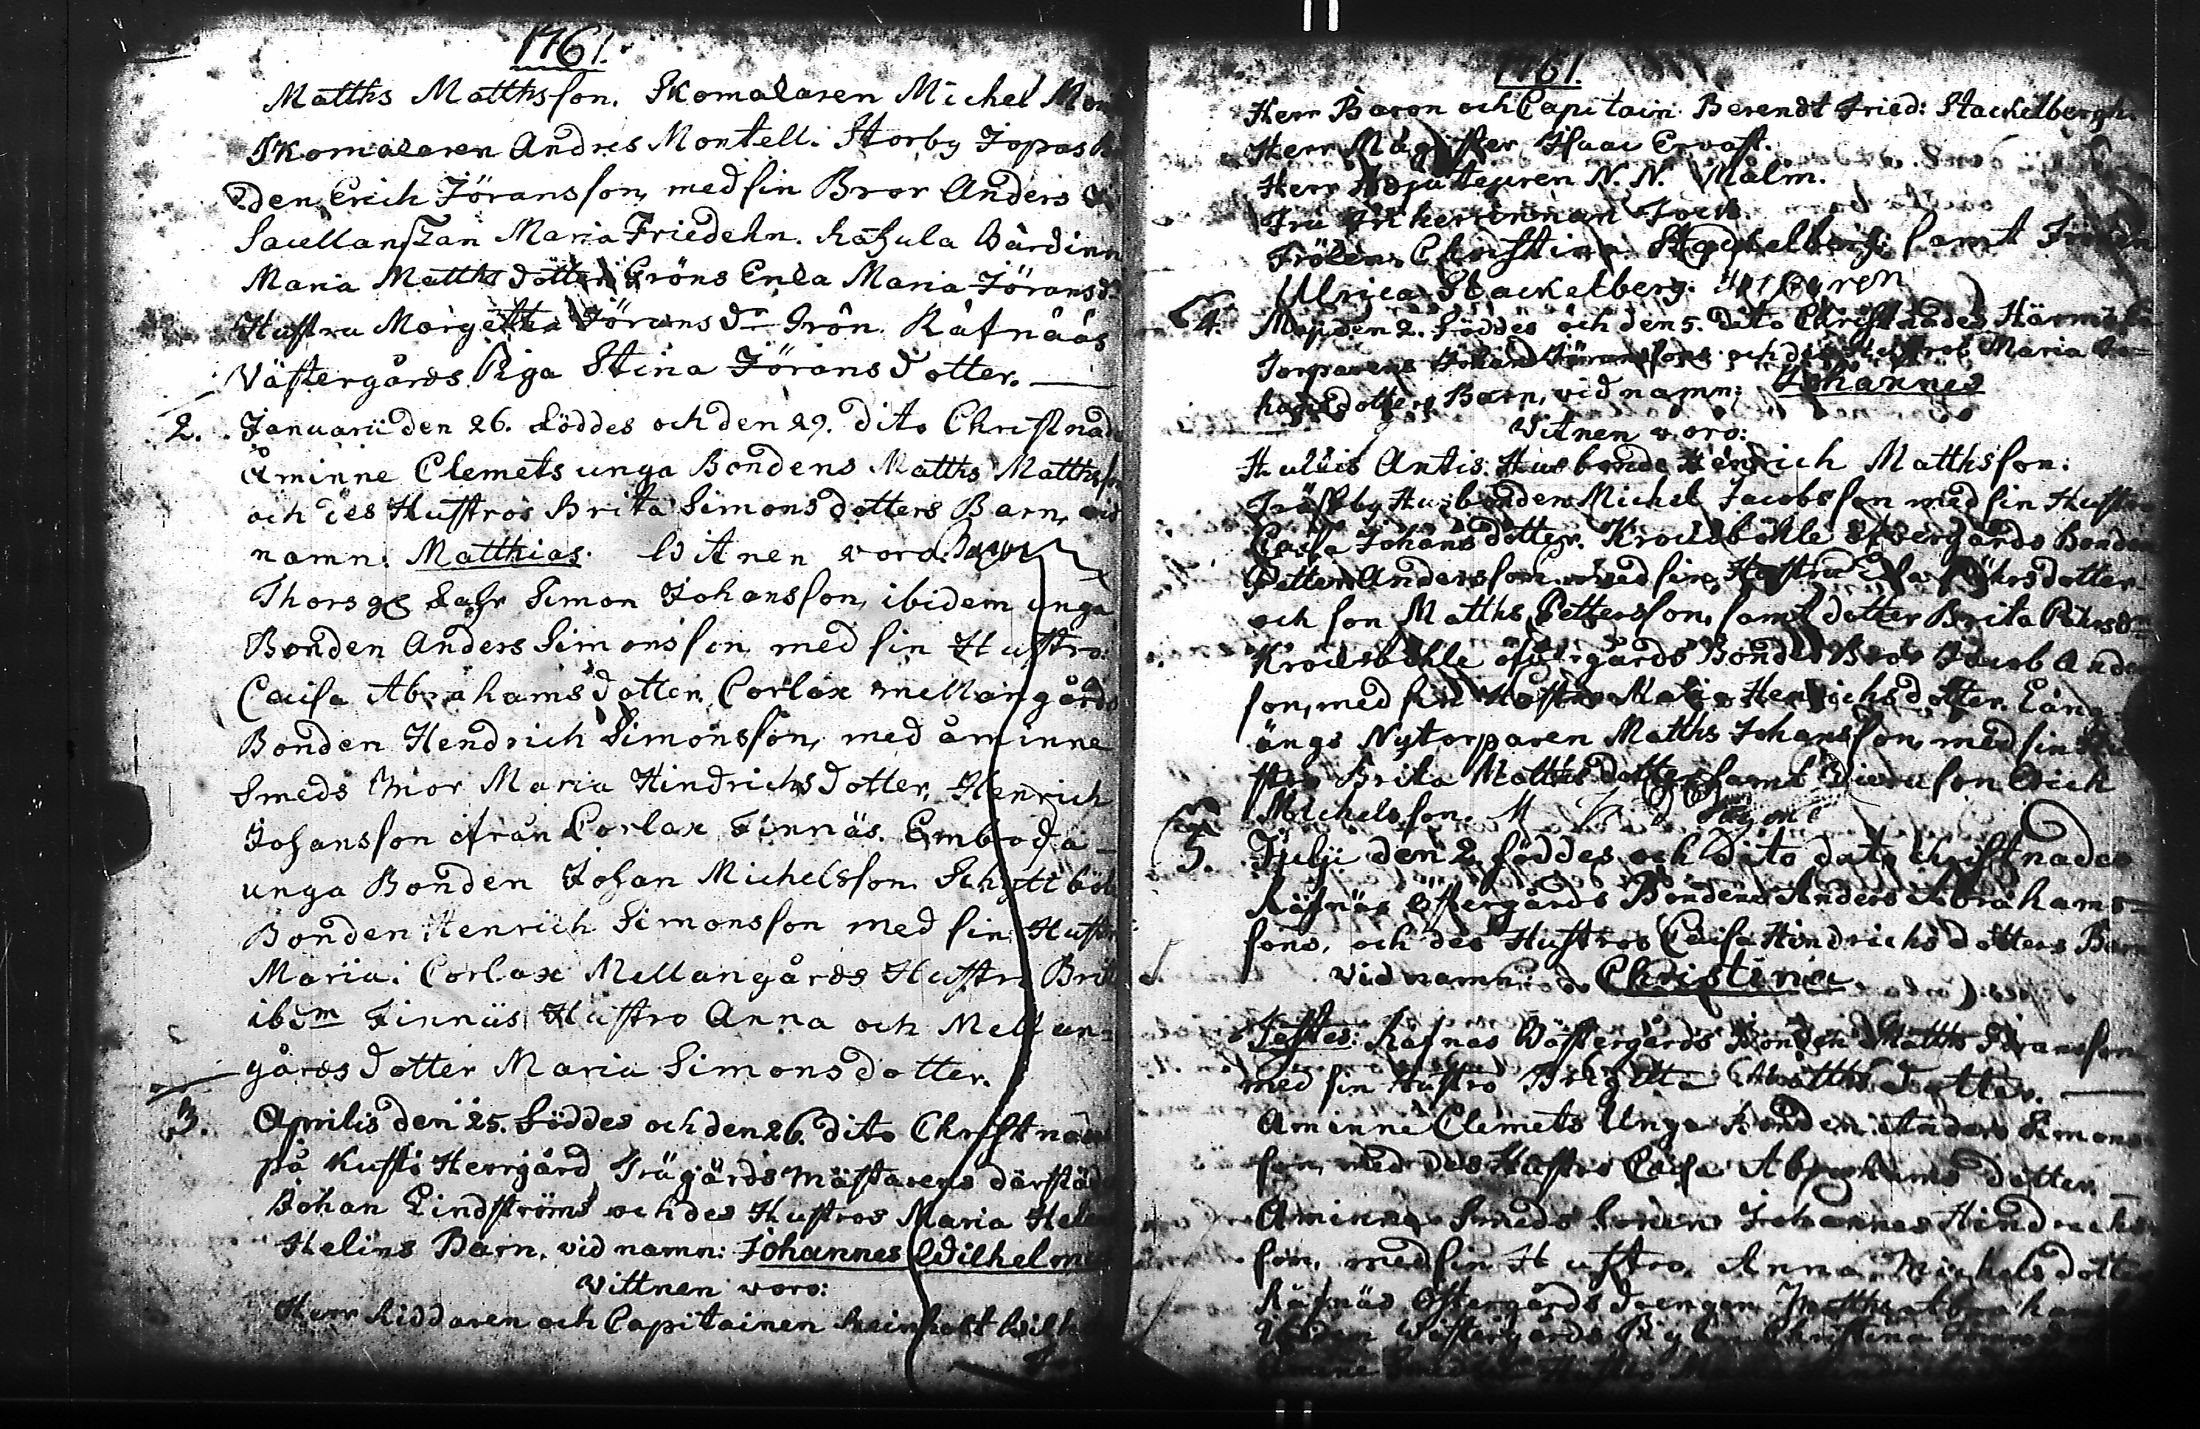 1761.
Matths Matthsson. Skomakaren Michel Mon
Skomakaren Andres Montell. Storby Jopas
den Erich Jöransson, med sin Bror Anders
Sacellanskan Maria Friedelin. Kahula Värdinn
Maria Matths dotter Gröns Enka Maria Jöransd:r
Hustru Margetha Jöransd:r Grön. Räfnääs
Västergårds Piga Stina Jöransdotter.
2. Januarii den 26. föddes och den 29. dito Christnad
Åminne Clemets unga Bondens Matths Matthss
och des Hustros Brita Simonsdotters Barn, vid
namn: Matthias. Vitnen voro:
Simon Johansson, ibidem unga
Bonden Anders Simonsson med sin Hustro
Caisa Abrahamsdotter, Corlax mellangårds
Bonden Hendrich Simonsson, med åminne
Smeds Mor Maria Hindrichsdotter, Henrich
Johansson ifrån Corlax Finnäs. Emboda
unga Bonden Johan Michelsson. Schyttböl
Bonden Henrich Simonsson med sin Hustr
Maria. Corlax Mellangårds Hustro Brit
ibdm Finnäs Hustro Anna och Mellan-
gårds dotter Maria Simonsdotter.
3. Aprilis den 25. föddes och den 26. dito Christnad
på Kusto Herrgård, Trägårds Mästarens därstäd
Johan Lindströms och des Hustros Maria Hele
Helins Barn, vid namn: Johannes Wilhelm
Vittnen voro:
Herr Riddaren och Capitainen Reinholt Wilh
1761.
Herr Baron och Capitain Berendt Fried: Stackelbergh.
Herr Magister Isaac Ervast.
Herr N. N. Malm.
Fru Friherrinnan
Frölen Christina Stackelberg: samt Frölen
Ulrica Stackelberg.
4. Maji den 2. föddes och den 5. dito Christnades
Torparens Johan Jöranssons och des Hustros Maria Jo-
hansdotters Barn, vid namn: Johannes
Vitnen voro:
Antis Husbonde Henrich Matthsson.
Träskby Husbonden Michel Jacobsson med sin Hustro
Caisa Johansdotter. Krogsböhle Bonden
Petter Andersson med sin Hustru
och son Matths Pettersson, samt dotter Brita
Krogsböhle öfvergårds Bonde Bror Jacob Anders
son, med sin Hustro Maria Henrichsdotter. Lång-
ängs Nytorparen Matths Johansson, med sin Hu-
stro Brita Matthsdotter samt son Erich
Michelsson.
5. Julii den 2. föddes och dito dato christnades
Räfnäs Östergårds Bondens Anders Abrahams-
sons, och des Hustros Caisa Hindrichsdotters Barn
vid namn: Christina
Testes: Räfnäs Västergårds Bonden Matths Jöransson
med sin Hustro Brigetta Matthsdotter.
Åminne Clemets Unga Bonden Anders Simons-
son, med des Hustro Caisa Abrahams dotter.
Åminne Smeds Sonen Johannes Hindrichs-
son, med sin Hustro Anna Michelsdotter
Räfnäs Östergårds drengen Matths Abraham
Västergårds Christina